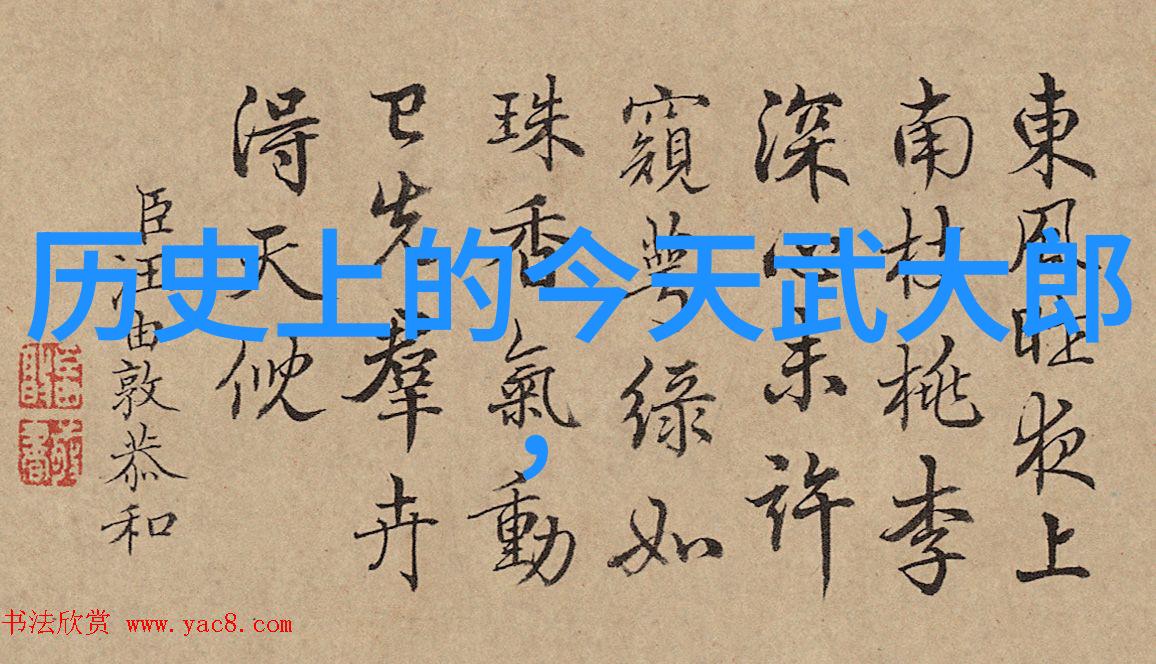 历史上的今天武大郎
，
東風昨夜上
南枝桃李
深宮未許
窺萼綠如
珠香氣動
已先羣卉
得天倪
臣汪由敦恭和
书法欣赏 www.yac8.com